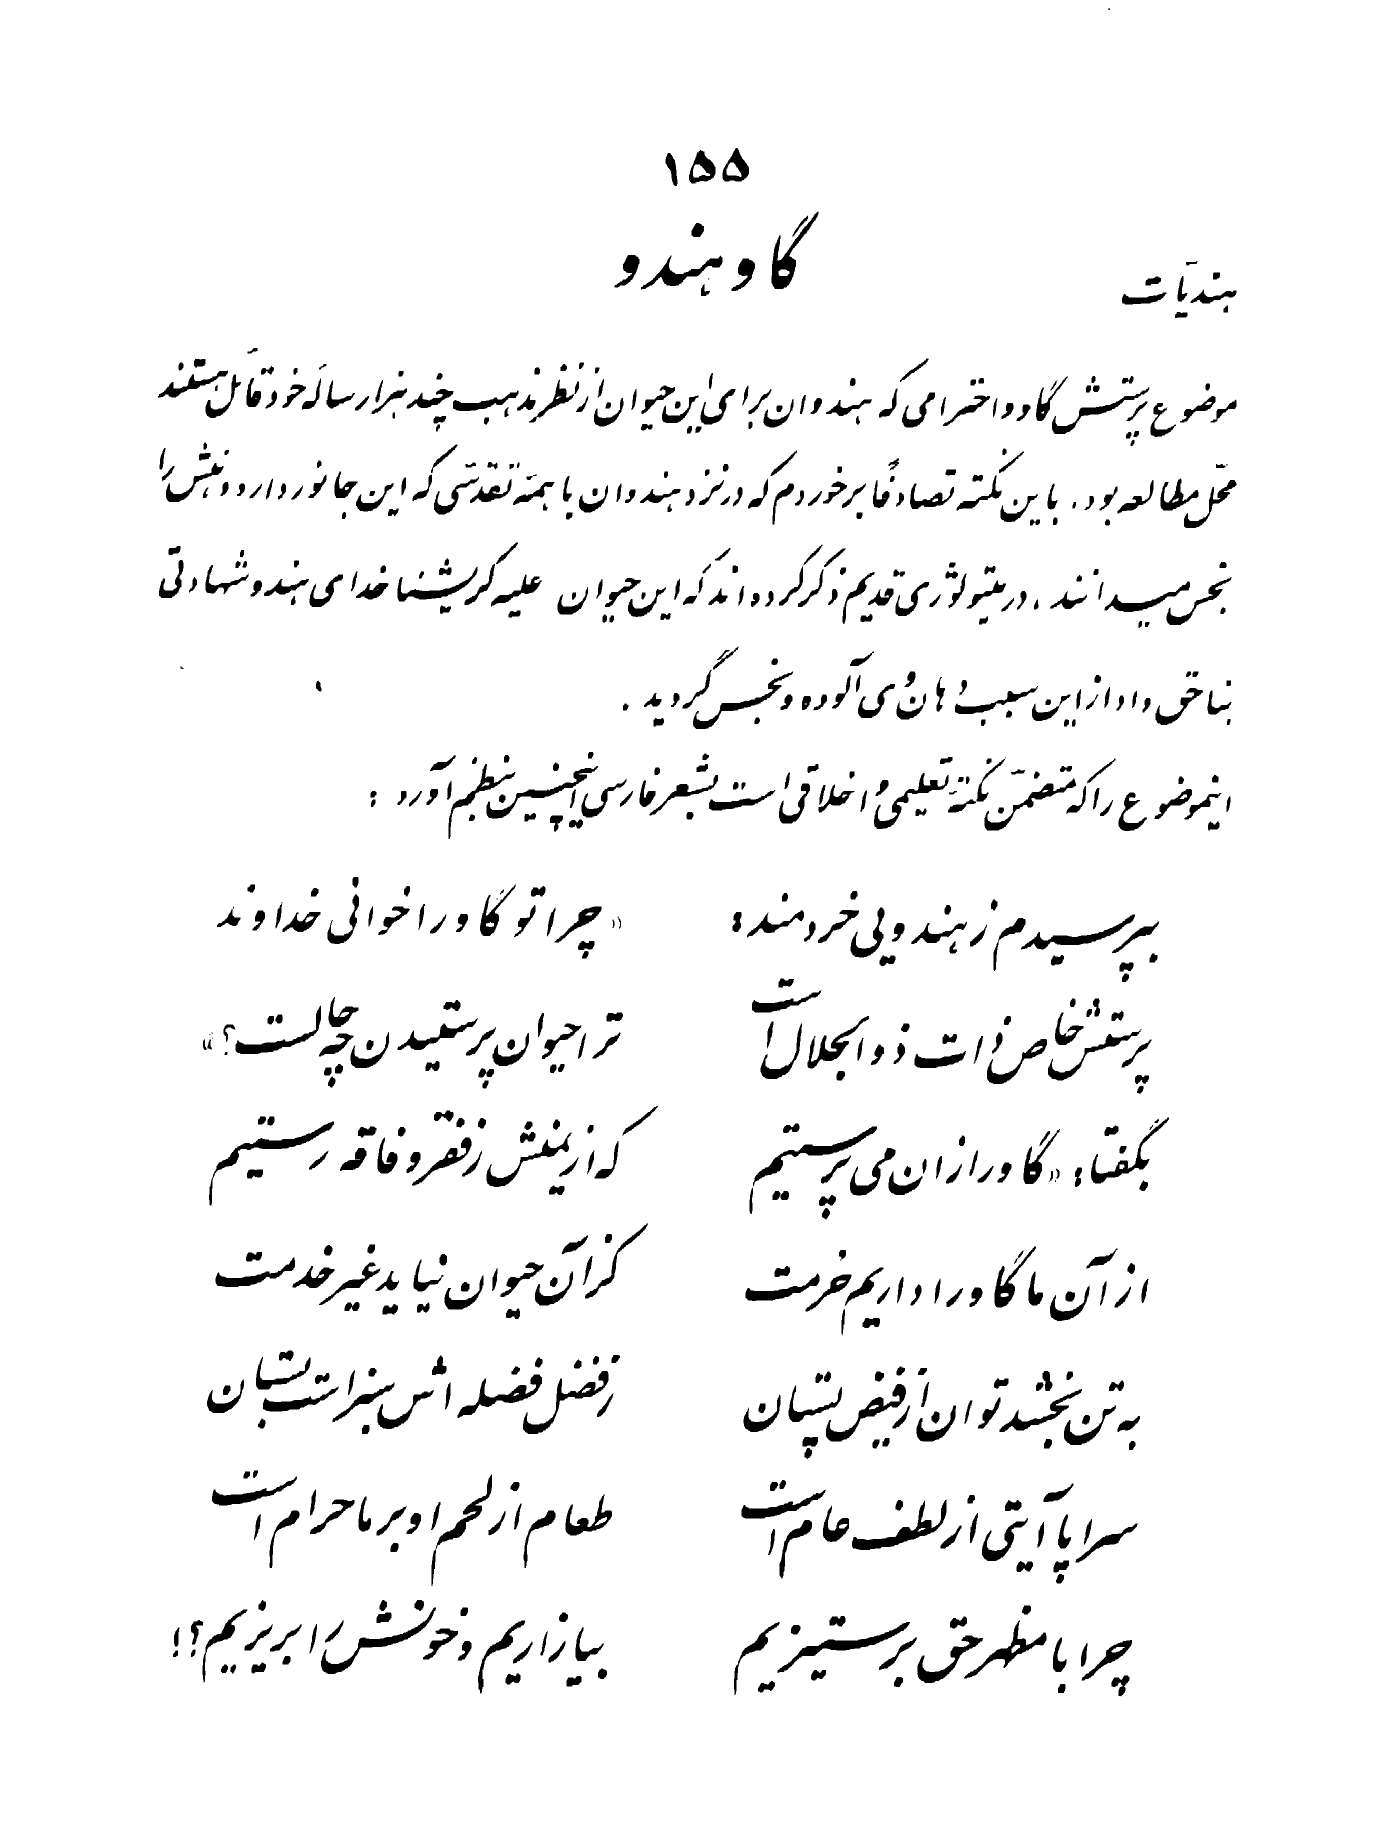 ۱۵۵
گاو هندو
هندیّات
موضوع پرستش گاو و احترامی که هندوان برای این حیوان از نظر مذهب چند هزار سالهٔ خود قائل هستند
محلّ مطالعه بود. باین نکته تصادفاً برخوردم که در نزد هندوان با همهٔ تقدّسی که این جانور دارد دهنش را
نجس میدانند. در میتولوژی قدیم ذکر کرده‌اند که این حیوان علیه کریشنا خدای هندو شهادتی
بناحق داد از این سبب دهان وی آلوده و نجس گردید.
اینموضوع را که متضمّن نکتهٔ تعلیمی و اخلاقی است بشعر فارسی اینچنین بنظم آورد :
بپرسیدم ز هندویی خردمند: «چرا تو گاو را خوانی خداوند
پرستش خاص ذات ذوالجلال است ترا حیوان پرستیدن چه حالست؟»
بگفتا: «گاو را زان می پرستیم که از یمنش ز فقر و فاقه رستیم
از آن ما گاو را داریم حرمت کز آن حیوان نیاید غیر خدمت
به تن بخشد توان از فیض پستان ز فضل فضله اش سبز است بستان
سراپا آیتی از لطف عام است طعام از لحم او بر ما حرام است
چرا با مظهر حق برستیزیم بیازاریم و خونش را بریزیم؟!